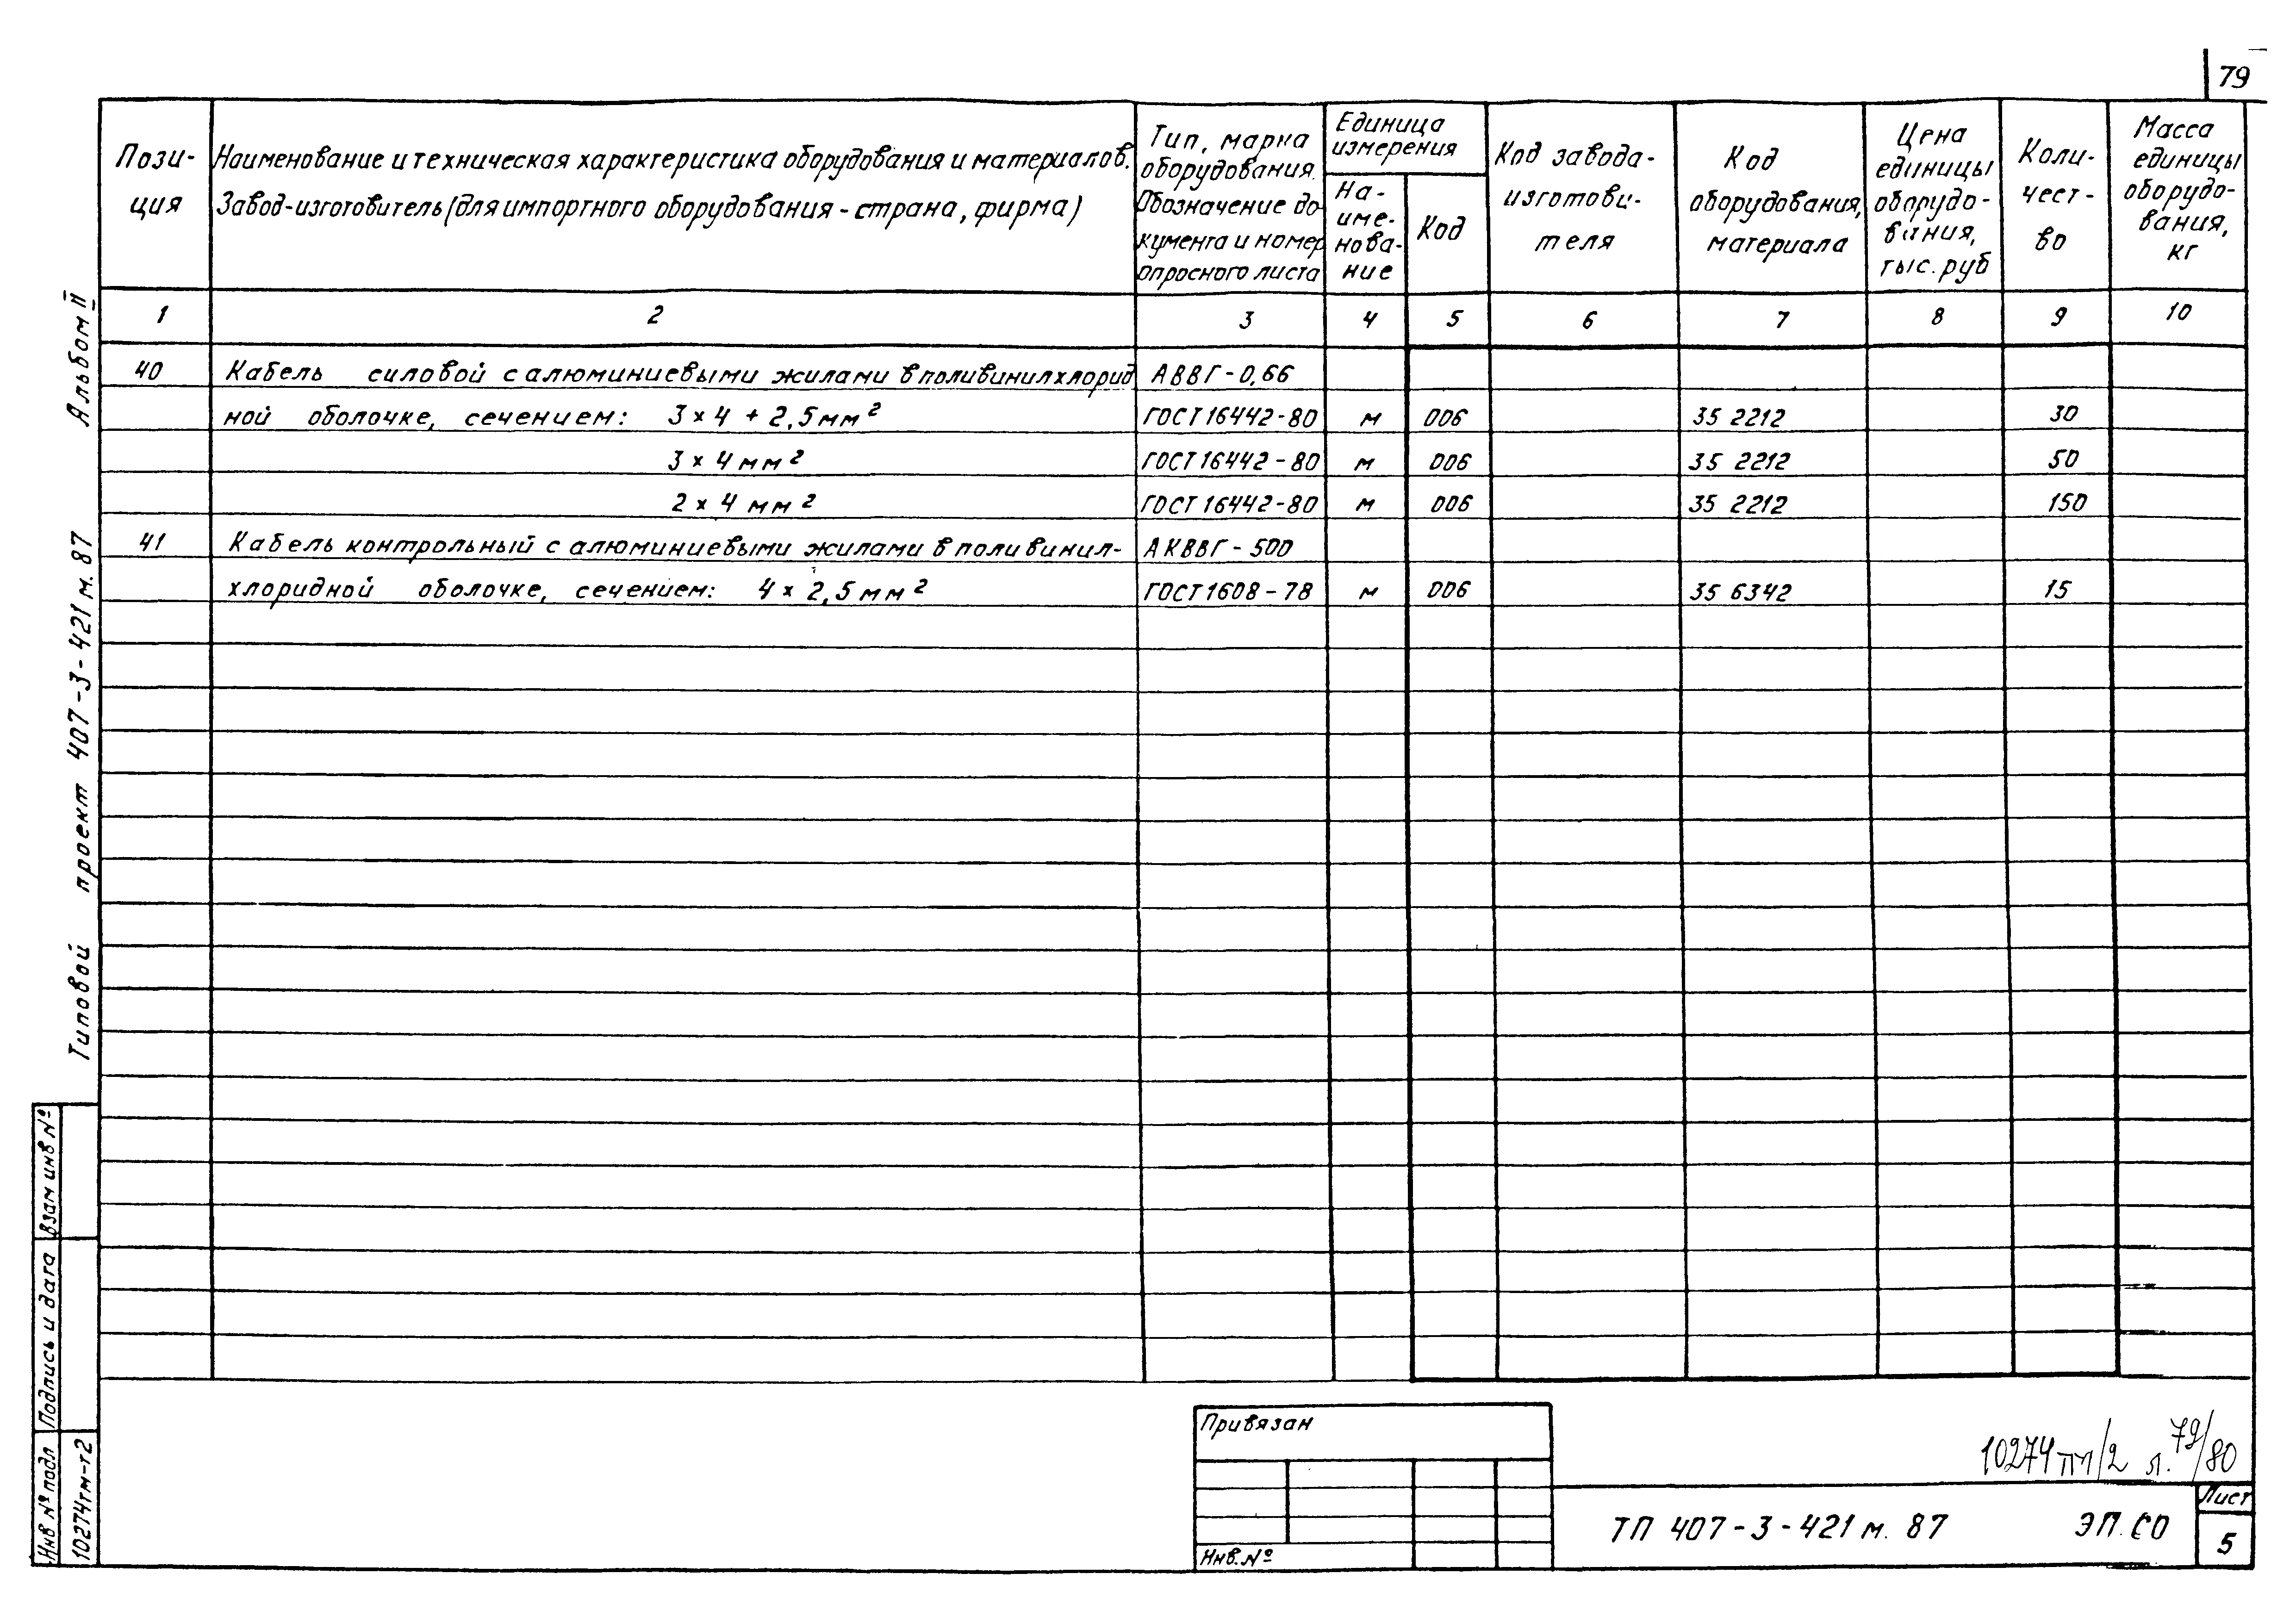 79
Пози-
ция
Наименование и техническая характеристика оборудования и материалов.
Завод-изготовитель (для импортного оборудования - страна, фирма)
Тип, марка
оборудования.
Обозначение до-
кумента и номер
опросного листа
Единица
измерения
На-
име-
нова-
ние
Код
Код завода-
изготови-
теля
Код
оборудования,
материала
Цена
единицы
оборудо-
вания,
тыс. руб
Коли-
чест-
во
Масса
единицы
оборудо-
вания,
кг
1 2 3 4 5 6 7 8 9 10
40 Кабель силовой с алюминиевыми жилами в поливинилхлорид АВВГ-0,66
ной оболочке, сечением: 3 × 4 + 2,5 мм² ГОСТ 16442-80 м 006 35 2212 30
3 × 4 мм² ГОСТ 16442-80 м 006 35 2212 50
2 × 4 мм² ГОСТ 16442-80 м 006 35 2212 150
41 Кабель контрольный с алюминиевыми жилами в поливинил- АКВВГ-500
хлоридной оболочке, сечением: 4 × 2,5 мм² ГОСТ 1608-78 м 006 35 6342 15
Альбом II
Типовой проект 407-3-421 м. 87
Взам инв №
Подпись и дата
Инв № подл
10274тм-т2
Привязан
Инв. №
10274тм/2 л. 79/80
ТП 407-3-421 м. 87 ЭП. СО
Лист
5